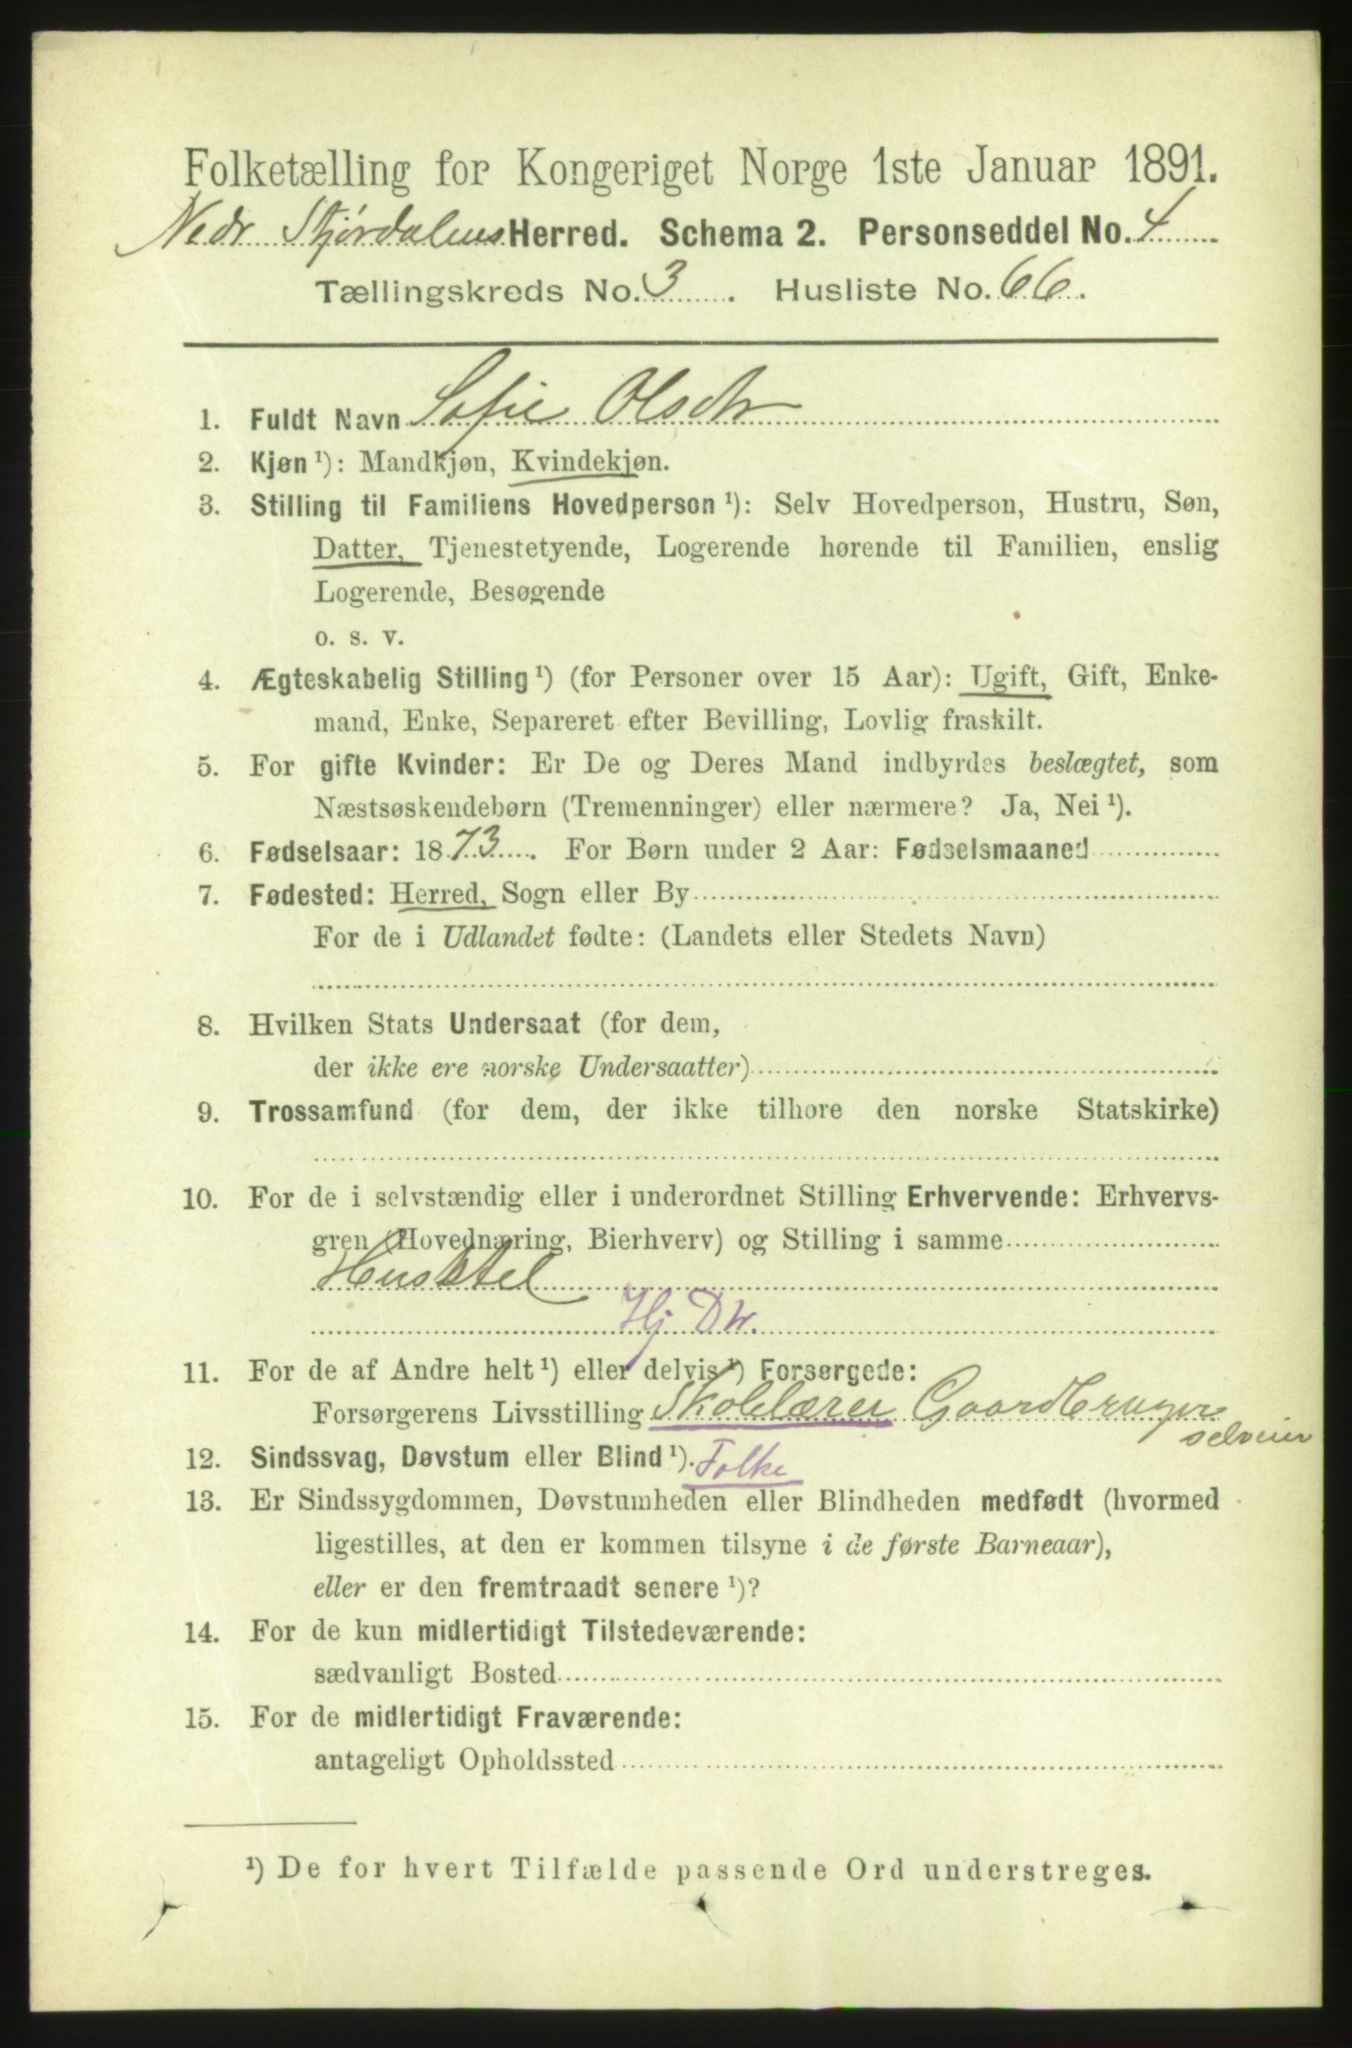 Folketælling for Kongeriget Norge 1ste Januar 1891.
Nedr Stjørdalens Herred. Schema 2. Personseddel No. 4
Tællingskreds No. 3. Husliste No. 66.
1. Fuldt Navn Sofie Olsdtr
2. Kjøn ¹): Mandkjøn, Kvindekjøn.
3. Stilling til Familiens Hovedperson ¹): Selv Hovedperson, Hustru, Søn,
Datter, Tjenestetyende, Logerende hørende til Familien, enslig
Logerende, Besøgende
o. s. v.
4. Ægteskabelig Stilling ¹) (for Personer over 15 Aar): Ugift, Gift, Enke-
mand, Enke, Separeret efter Bevilling, Lovlig fraskilt.
5. For gifte Kvinder: Er De og Deres Mand indbyrdes beslægtet, som
Næstsøskendebørn (Tremenninger) eller nærmere? Ja, Nei ¹).
6. Fødselsaar: 1873. For Børn under 2 Aar: Fødselsmaaned
7. Fødested: Herred, Sogn eller By
For de i Udlandet fødte: (Landets eller Stedets Navn)
8. Hvilken Stats Undersaat (for dem,
der ikke ere norske Undersaatter)
9. Trossamfund (for dem, der ikke tilhøre den norske Statskirke)
10. For de i selvstændig eller i underordnet Stilling Erhvervende: Erhvervs-
gren (Hovednæring, Bierhverv) og Stilling i samme
Husstel
Hj Dtr.
11. For de af Andre helt ¹) eller delvis ¹) Forsørgede:
Forsørgerens Livsstilling Skolelærer Gaardbruger
selveier
12. Sindssvag, Døvstum eller Blind ¹). Folke
13. Er Sindssygdommen, Døvstumheden eller Blindheden medfødt (hvormed
ligestilles, at den er kommen tilsyne i de første Barneaar),
eller er den fremtraadt senere ¹)?
14. For de kun midlertidigt Tilstedeværende:
sædvanligt Bosted
15. For de midlertidigt Fraværende:
antageligt Opholdssted
¹) De for hvert Tilfælde passende Ord understreges.